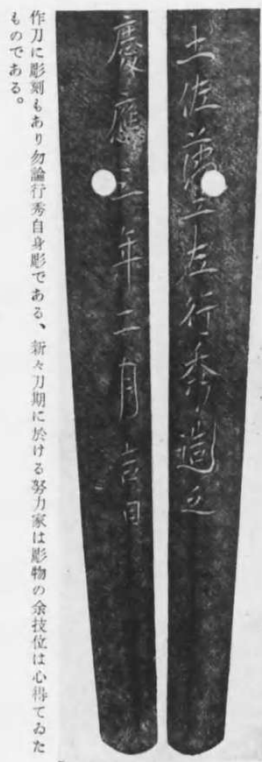 土佐藩士左行秀造之
慶應三年二月吉日
作刀に彫刻もあり勿論行秀自身彫である、新々刀期に於ける努力家は彫物の余技位は心得てゐた
ものである。